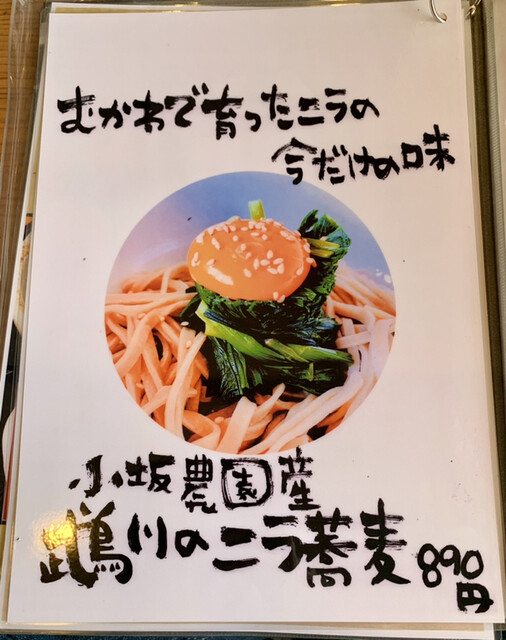 むかわで育ったニラの
今だけの味
小坂農園産
鵡川のニラ蕎麦 890
円